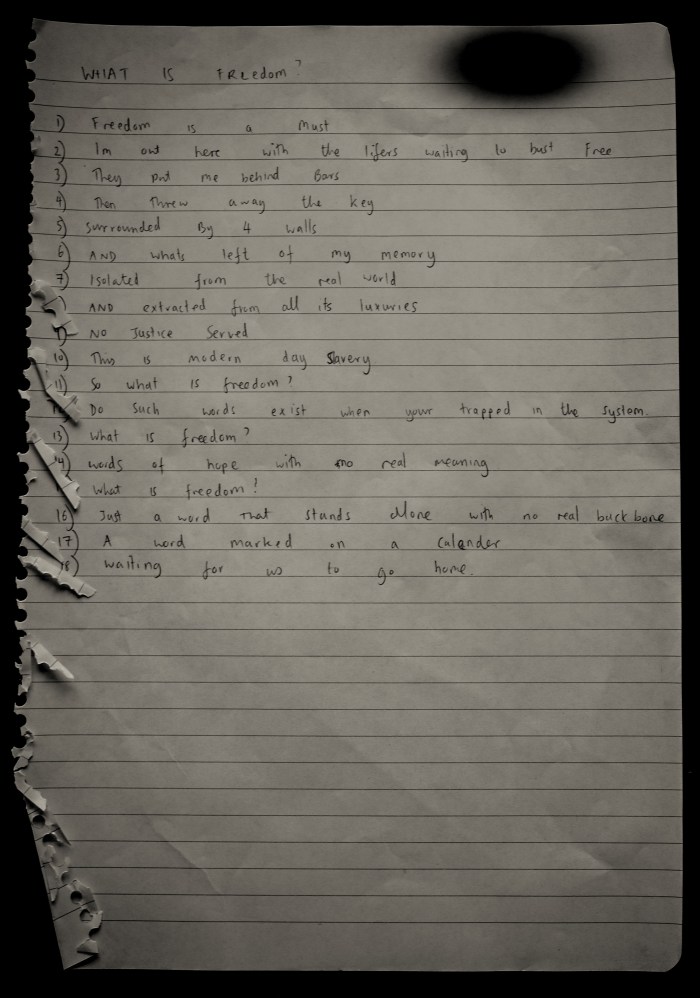 WHAT IS FREedom?
1) Freedom is a Must
2) Im out here with the lifers waiting to bust Free
3) They put me behind Bars
4) Then Threw away the key
5) Surrounded By 4 walls
6) AND whats left of my memory
7) Isolated from the real world
) AND extracted from all its luxuries
9) NO Justice Served
10) This is modern day Slavery
11) So what is freedom?
Do Such words exist when your trapped in the system.
13) What is freedom?
14) words of hope with no real meaning
What is freedom?
16) Just a word That stands alone with no real backbone
17) A word marked on a Calender
18) waiting for us to go home.